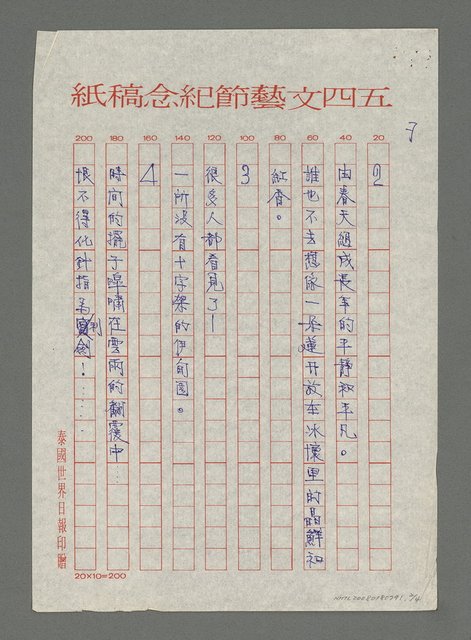 五四文藝節紀念稿紙
20
40
60
80
100
120
140
160
180
200
2
由春天組成長年的平靜和平凡。
誰也不去想像一朵蓮開放在冰壞里的晶鮮和
紅香。
3
很多人都看見了!
一所沒有十字架的伊甸園。
4
時间的擺子嗥嘯在雲雨的翻覆中……
恨不得化針指為劍!……
20×10=200
泰國世界日報印贈